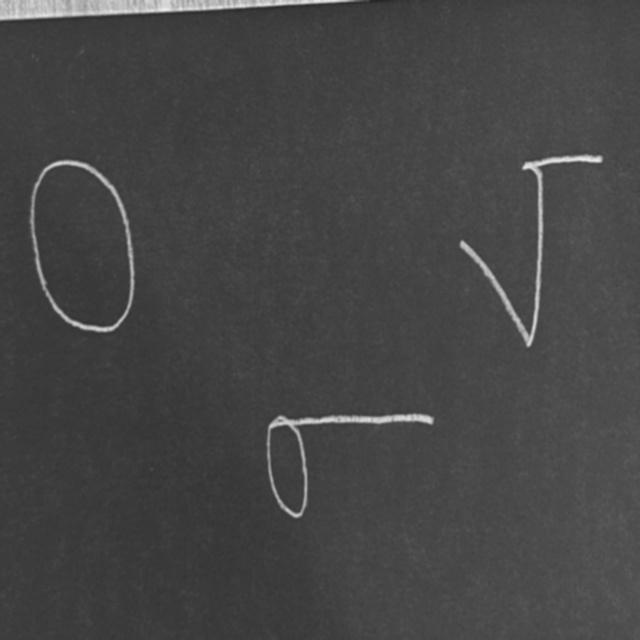 0 √
σ